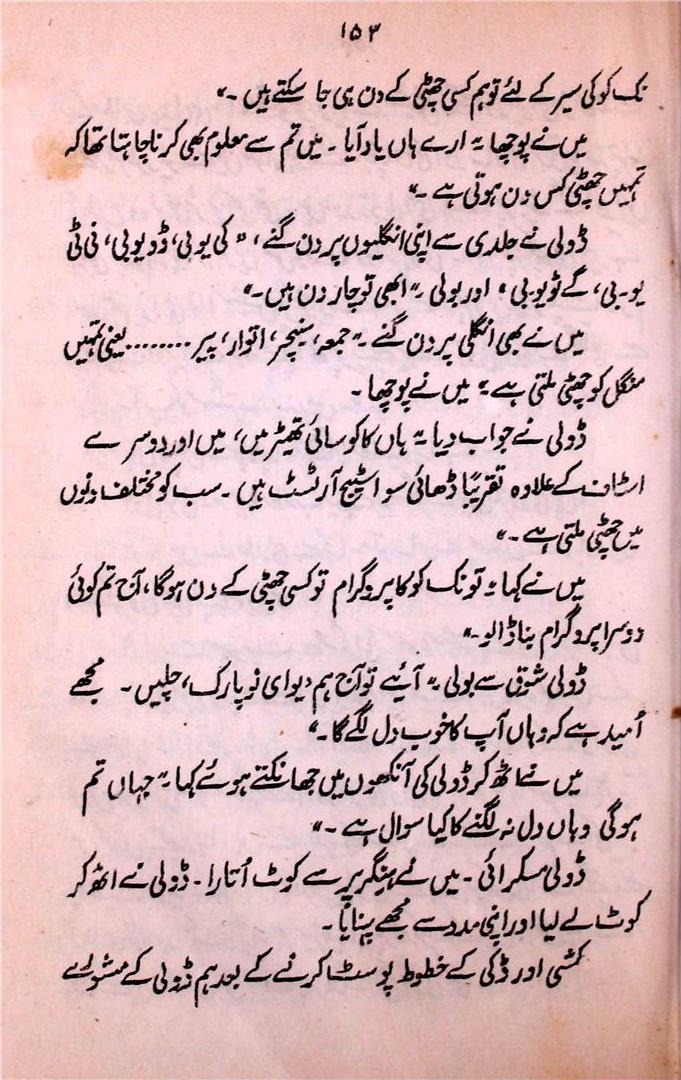 ۱۵۳
نک کو کی سیر کے لئے تو ہم کسی چھٹی کے دن ہی جا سکتے ہیں ۔"
میں نے پوچھا "ارے ہاں یاد آیا ۔ میں تم سے معلوم بھی کرنا چاہتا تھا کہ
تمہیں چھٹی کس دن ہوتی ہے ۔"
ڈولی نے جلدی سے اپنی انگلیوں پر دن گنے ، " کی یو بی، ڈو یو بی، نی ٹی
یو۔بی، گے ٹو یو بی " اور بولی ۔" ابھی تو چار دن ہیں ۔"
میں نے بھی انگلی پر دن گنے ۔" جمعہ، سنیچر، اتوار، پیر ........ یعنی تمہیں
منگل کو چھٹی ملتی ہے " میں نے پوچھا ۔
ڈولی نے جواب دیا " ہاں کاکوسائی تھیٹر میں، میں اور دوسرے
اسٹاف کے علاوہ تقریباً ڈھائی سو اسٹیج آرٹسٹ ہیں ۔ سب کو مختلف دنوں
میں چھٹی ملتی ہے ۔"
میں نے کہا " تو نک کو کا پروگرام تو کسی چھٹی کے دن ہوگا، آج تم کوئی
دوسرا پروگرام بنا ڈالو ۔"
ڈولی شوق سے بولی " آیئے تو آج ہم دیوای نو پارک، چلیں ۔ مجھے
اُمید ہے کہ وہاں آپ کا خوب دل لگے گا ۔"
میں نے اٹھ کر ڈولی کی آنکھوں میں جھانکتے ہوئے کہا " جہاں تم
ہوگی وہاں دل نہ لگنے کا کیا سوال ہے ۔"
ڈولی مسکرائی ۔ میں نے ہینگر پر سے کوٹ اُتارا ۔ ڈولی نے اٹھ کر
کوٹ لے لیا اور اپنی مدد سے مجھے پہنایا ۔
کٹسی اور ڈکی کے خطوط پوسٹ کرنے کے بعد ہم ڈولی کے مشورے